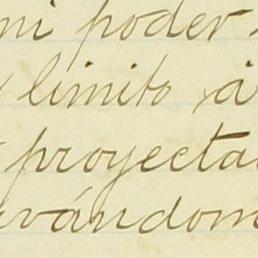 mi poder
limito á
proyecta
vándom